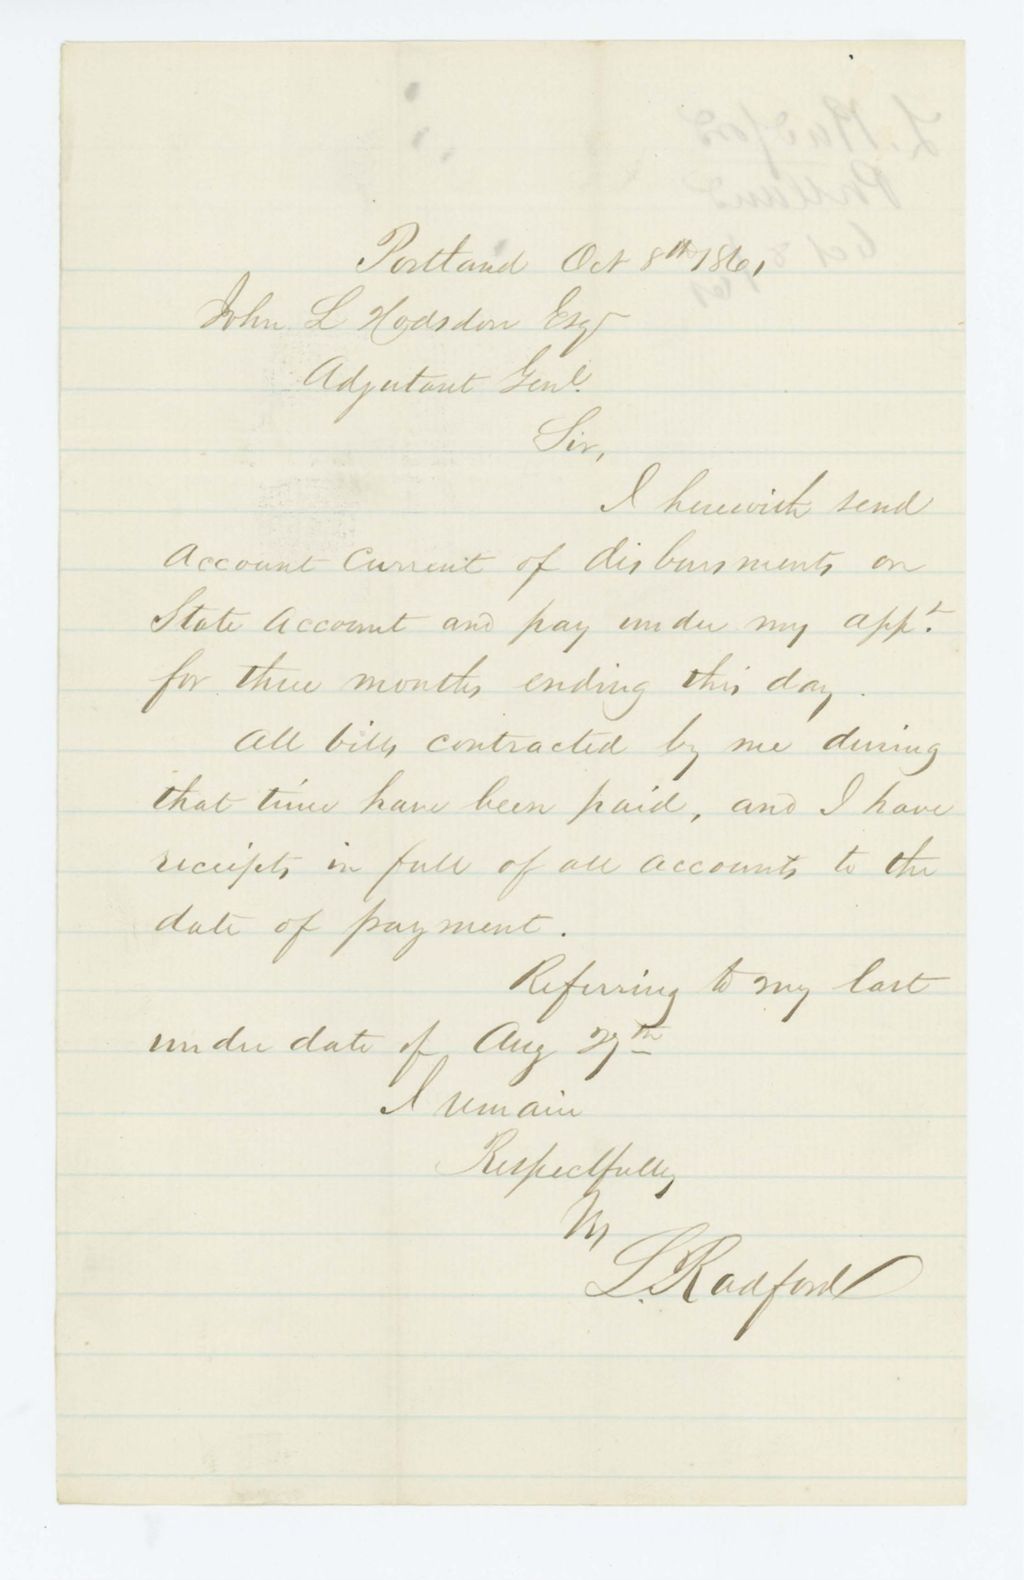 Portland Oct 8th 1861
John L Hodsdon Esqr
Adjutant Genl.
Sir,
I herewith send
Account Current of disbursments on
State Account and pay under my appt.
for three months ending this day.
All bills contracted by me during
that time have been paid, and I have
receipts in full of all accounts to the
date of payment.
Referring to my last
under date of Aug 29th
I remain
Respectfully
Yr
L. Radford